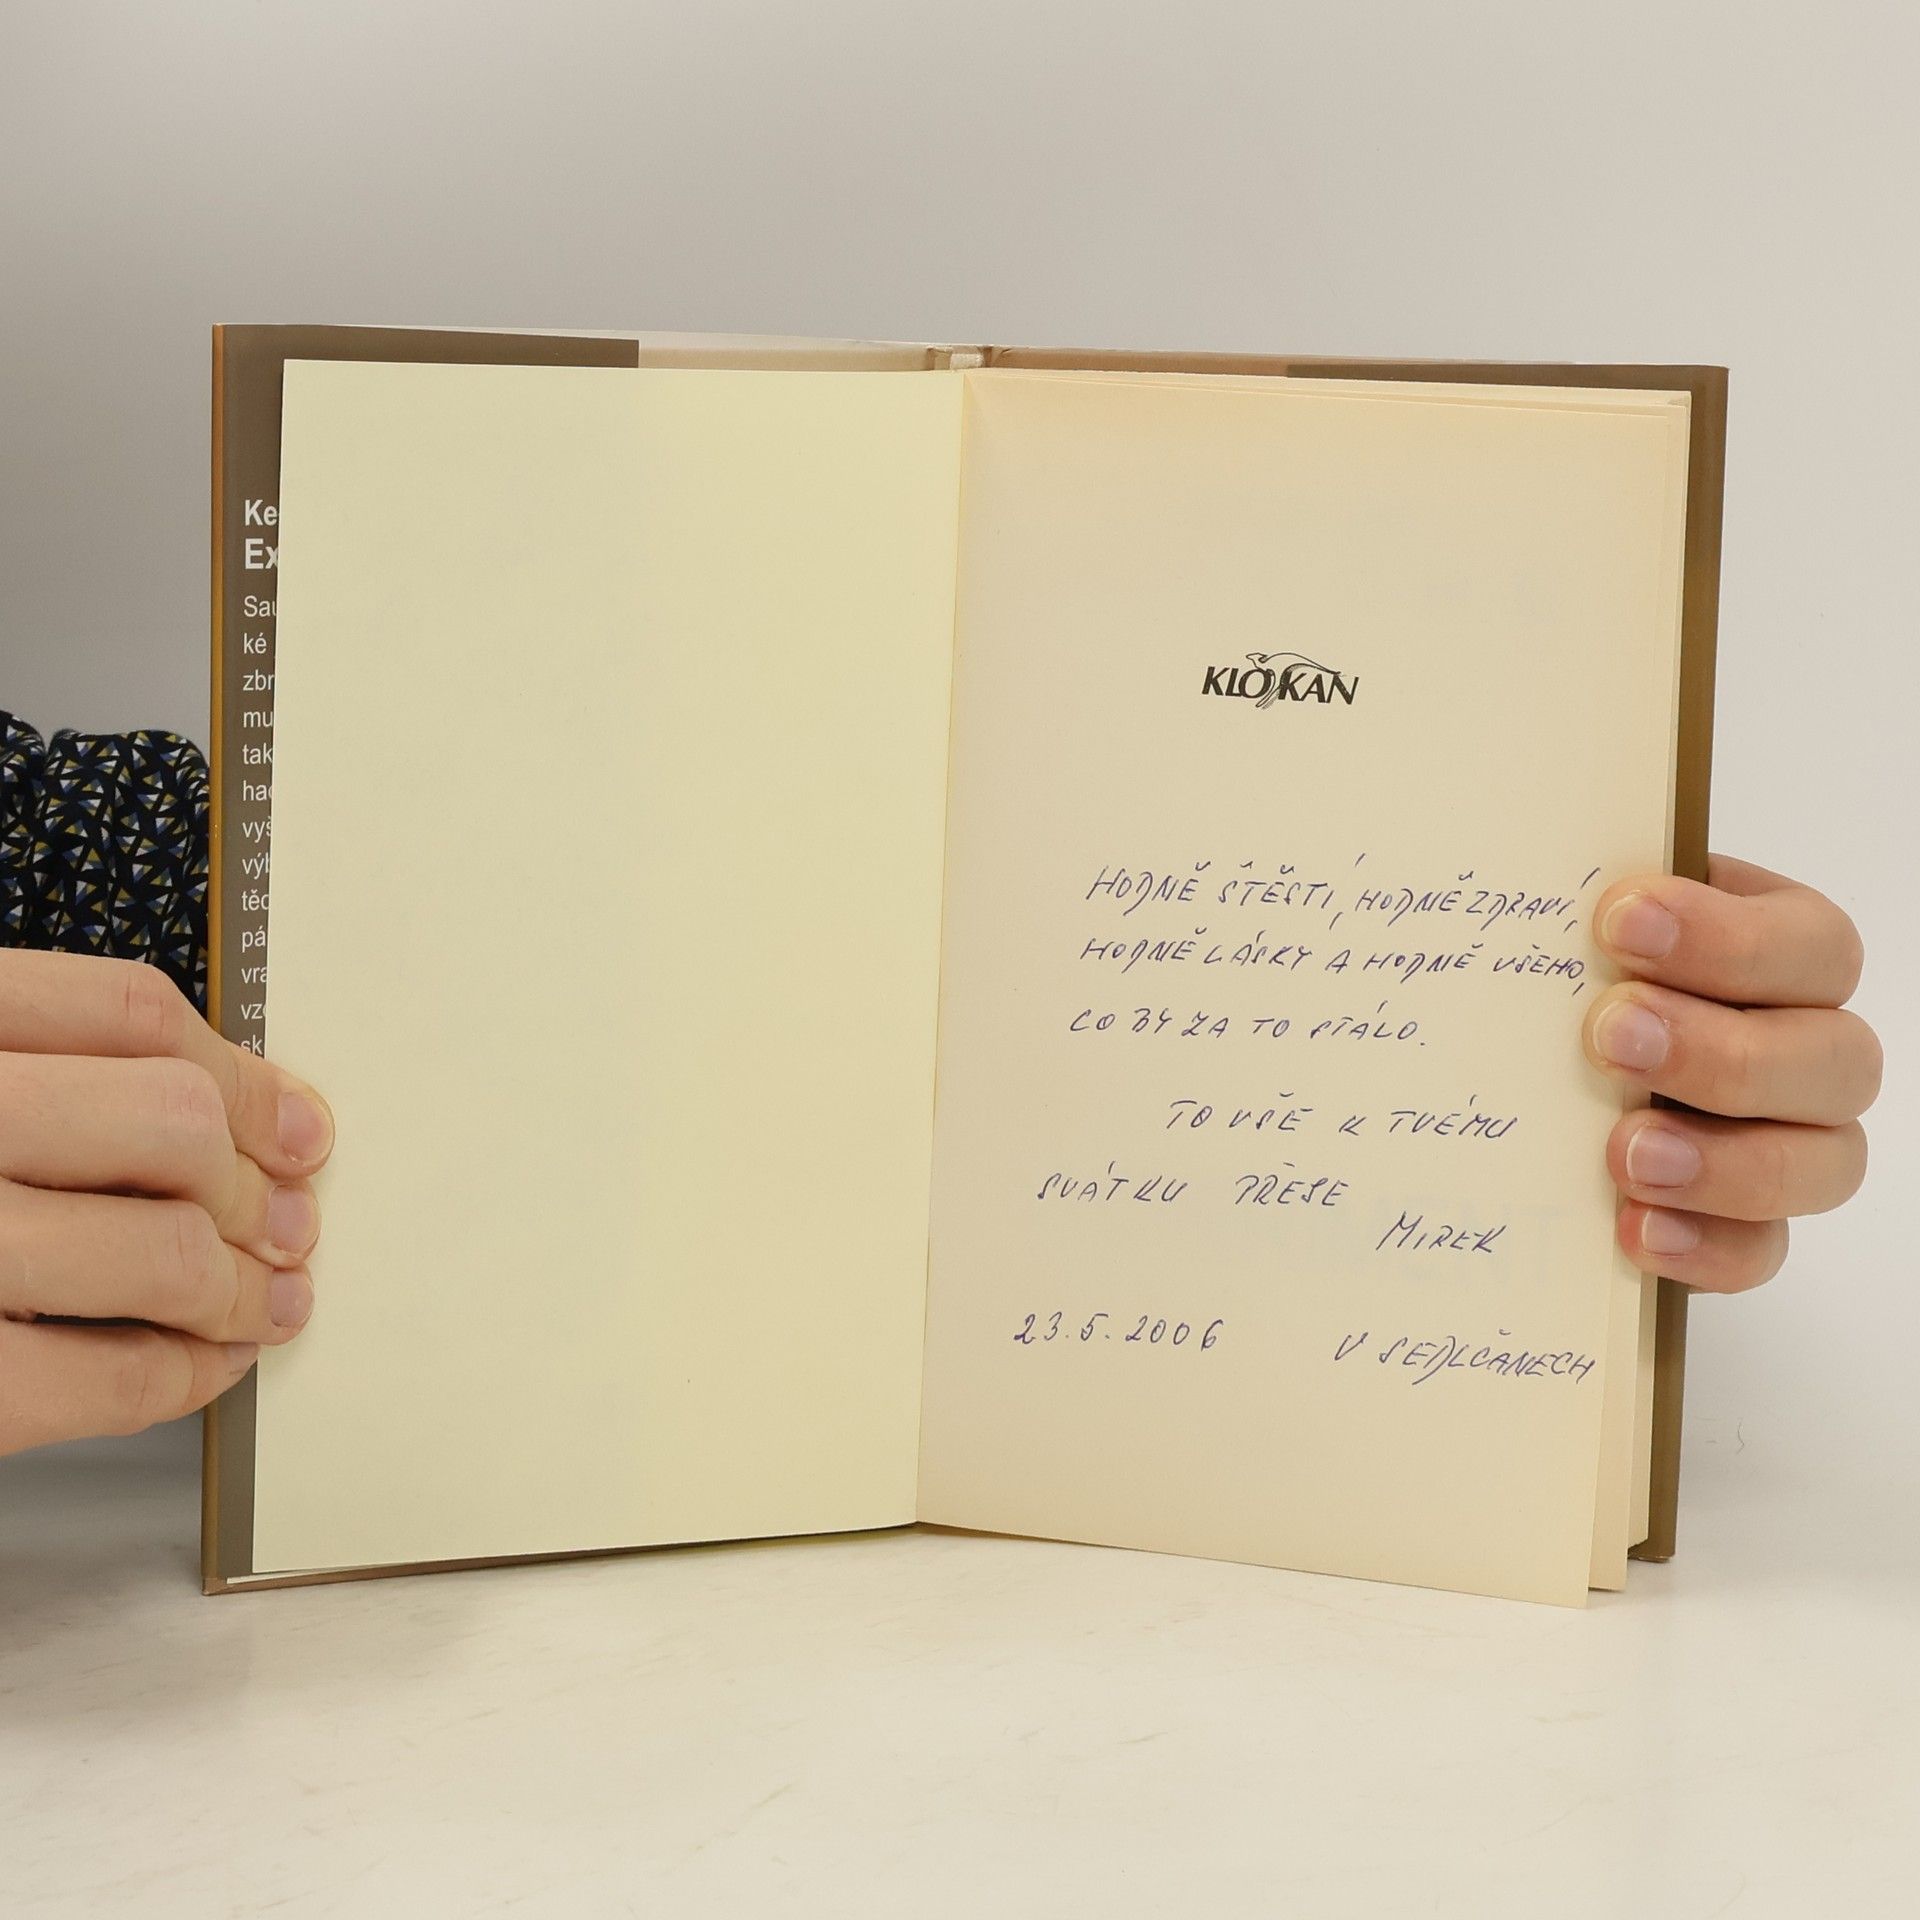 Ke
Ex
Sau
ké
zbr
mu
tak
had
vyš
výb
těc
pá
vra
vzd
sk
KLOKAN
HODNĚ ŠTĚSTÍ, HODNĚ ZDRAVÍ,
HODNĚ LÁSKY A HODNĚ VŠEHO,
CO BY ZA TO STÁLO.
TO VŠE K TVÉMU
SVÁTKU PŘEJE
MIREK
23.5.2006 V SEDLČANECH